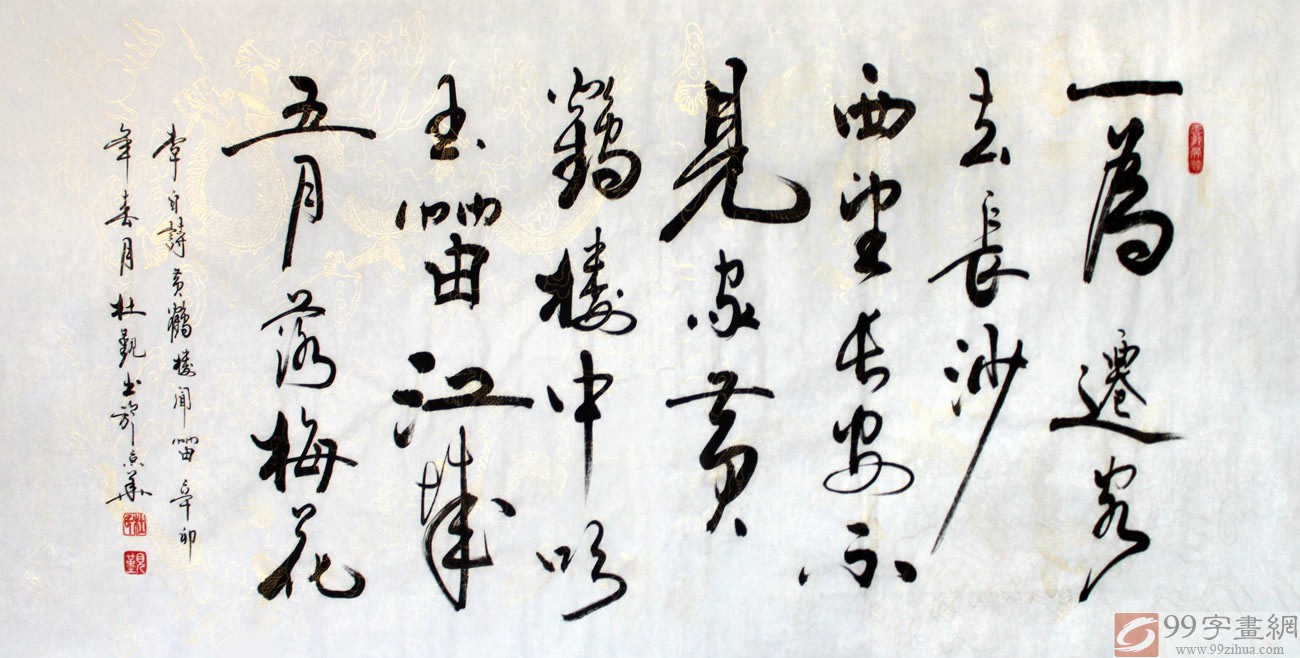 一為遷客
去長沙
西望長安不
見家黃
鶴樓中吹
玉笛江城
五月落梅花
李白詩黃鶴樓聞笛辛卯
年春月杜覲書於京華
99字畫網
www.99zihua.com